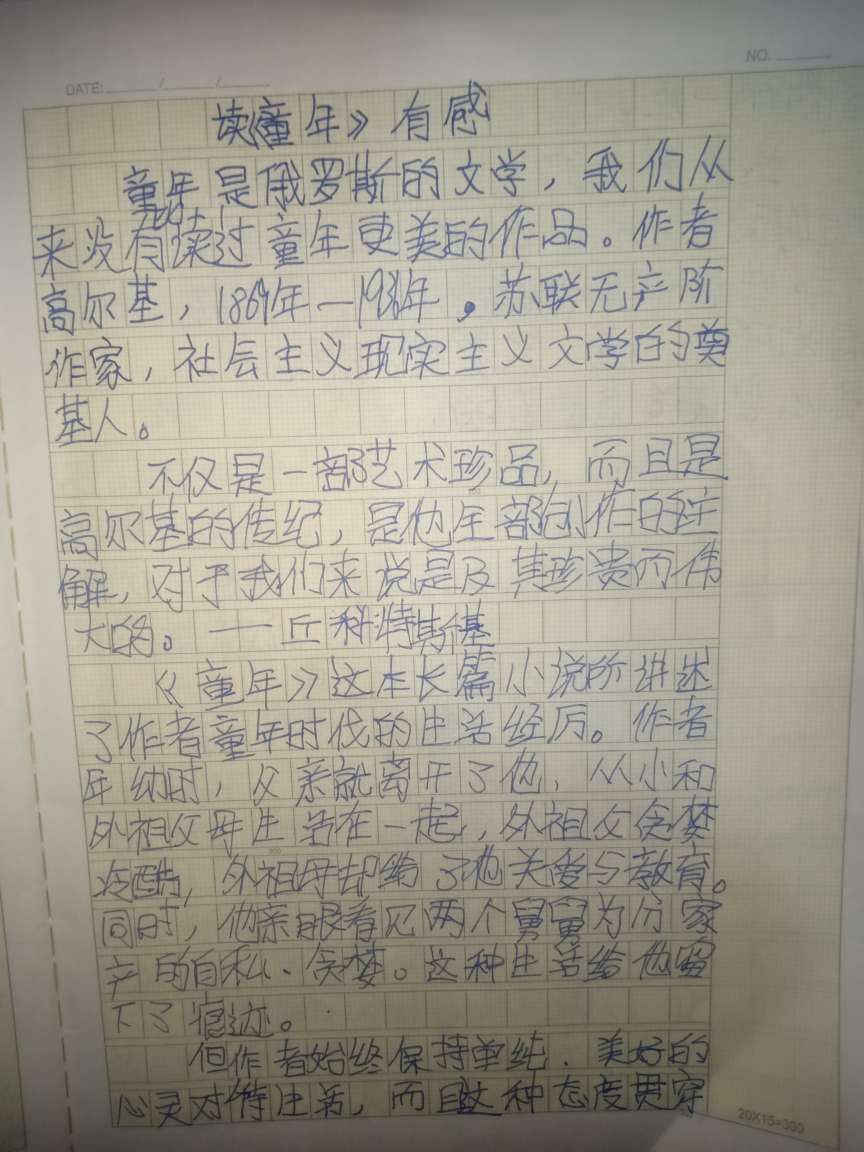 DATE: / /
NO.
读《童年》有感
童年是俄罗斯的文学，我们从
来没有读过童年更美的作品。作者
高尔基，1869年—1936年。苏联无产阶
作家，社会主义现实主义文学的奠
基人。
不仅是一部艺术珍品，而且是
高尔基的传纪，是他全部创作的注
解，对于我们来说是及其珍贵而伟
大的。——丘科特斯基
《童年》这本长篇小说所讲述
了作者童年时代的生活经历。作者
年幼时，父亲就离开了他，从小和
外祖父母生活在一起，外祖父贪婪
冷酷，外祖母却给了他关爱与教育。
同时，他亲眼看见两个舅舅为分家
产的自私、贪婪。这种生活给他留
下了痕迹。
但作者始终保持单纯、美好的
心灵对待生活，而且这种态度贯穿
20X15=300